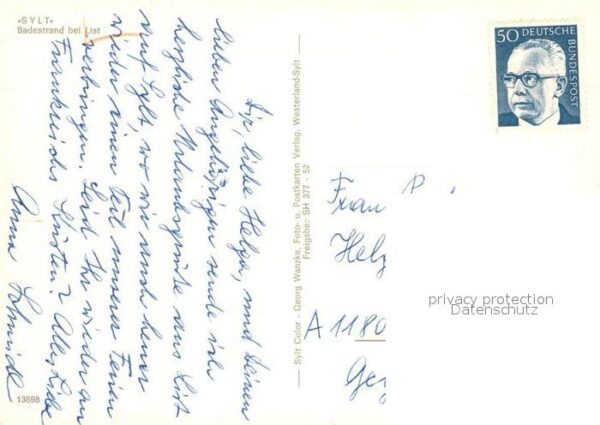 »SYLT«
Badestrand bei List
Dir, liebe Helga, und Deinen
lieben Angehörigen sende ich
herzliche Urlaubsgrüße aus List
auf Sylt, wo wir auch heuer
wieder einen Teil unserer Ferien
verbringen. Seid Ihr wieder an
Frankreichs Küsten? Alles Liebe
Anna Schmidt
13698
Sylt Color - Georg Wanzke, Foto- u. Postkarten Verlag, Westerland-Sylt
Freigabe: SH 377 - 52
50 DEUTSCHE
BUNDESPOST
Frau
Helg
A 1180
privacy protection
Datenschutz